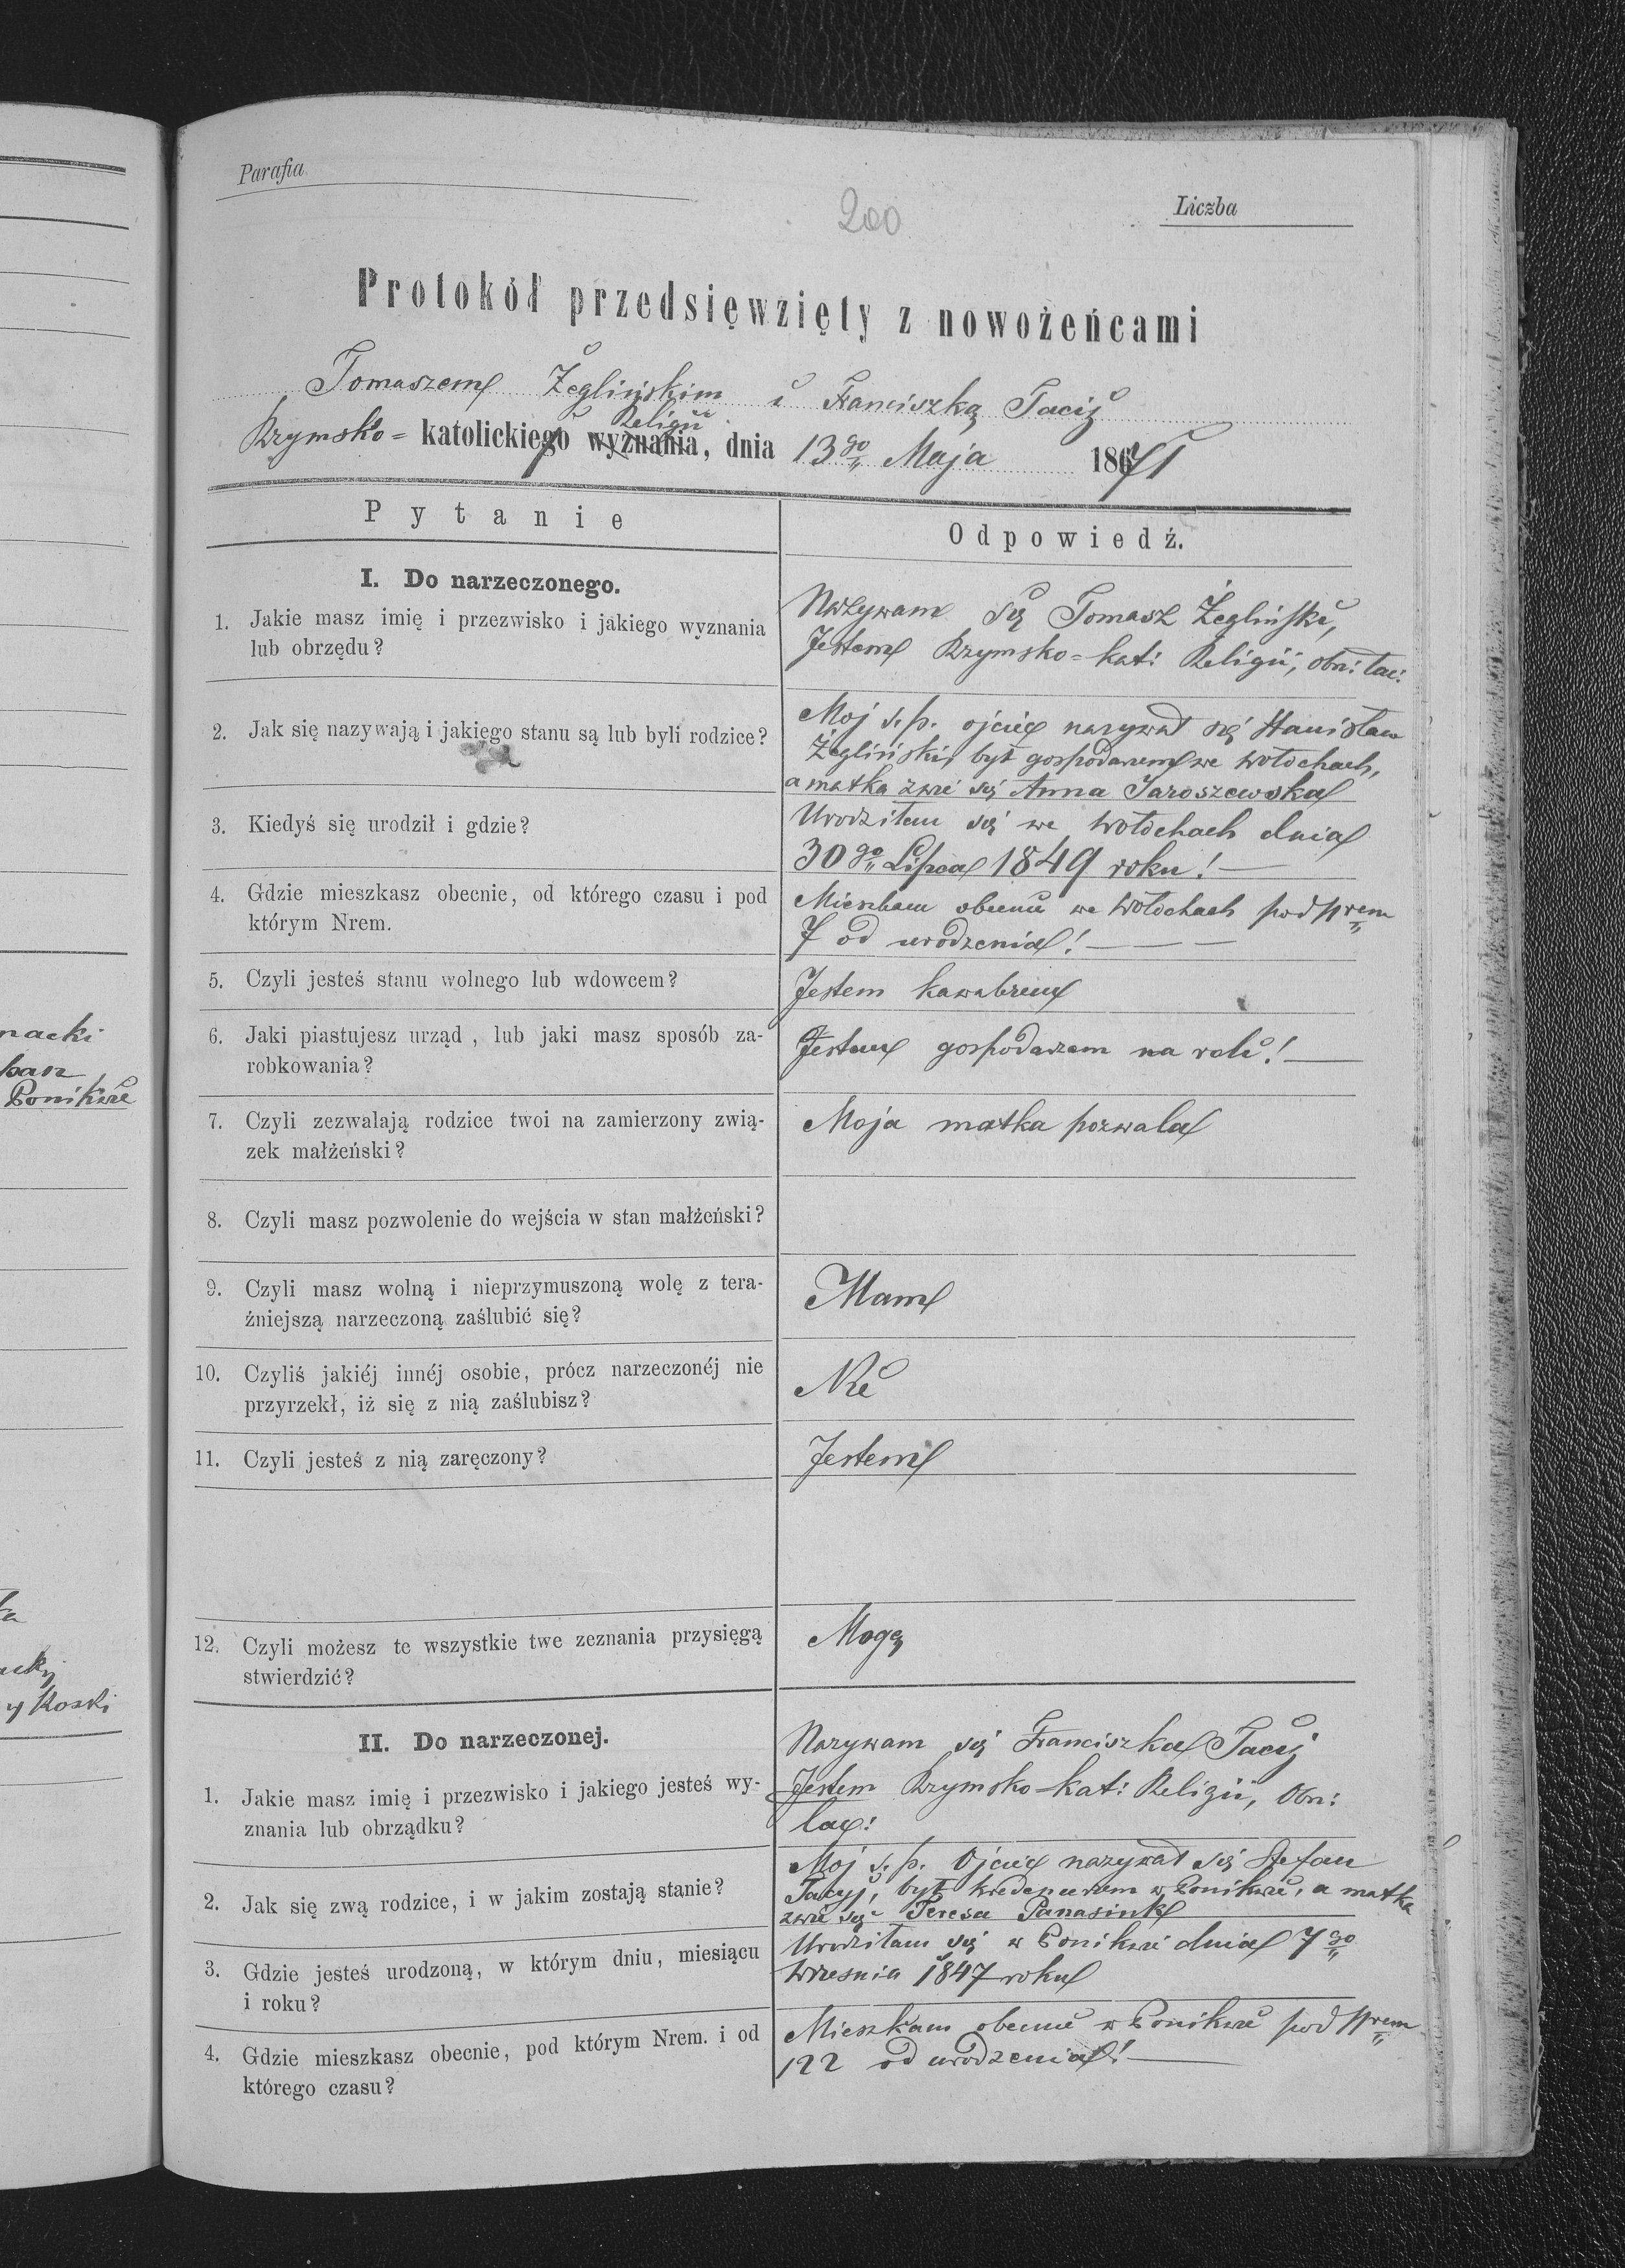 nacki
Ponikwe
ka
Parafia
200
Liczba
Protokół przedsięwzięty z nowożeńcami
Tomaszem Żeglińskim i Franciszką Tacij
Religii
Rzymsko= katolickiego wyznania, dnia 13go Maja 1871
Pytanie
Odpowiedź.
I. Do narzeczonego.
1. Jakie masz imię i przezwisko i jakiego wyznania
lub obrzędu?
Nazywam się Tomasz Żegliński,
Jestem Rzymsko=kat: Religii, obrz: łac:
2. Jak się nazywają i jakiego stanu są lub byli rodzice?
Moj ś.p. ojciec nazywał się Stanisław
Żegliński, był gospodarzem we Wołochach,
a matka zwie się Anna Jaroszewska
3. Kiedyś się urodził i gdzie?
Urodziłem się we Wołochach dnia
30go Lipca 1849 roku!—
4. Gdzie mieszkasz obecnie, od którego czasu i pod
którym Nrem.
Mieszkam obecnie we Wołochach pod Nrem
7 od urodzenia!———
5. Czyli jesteś stanu wolnego lub wdowcem?
Jestem kawalerem
6. Jaki piastujesz urząd, lub jaki masz sposób za-
robkowania?
Jestem gospodarzem na roli!—
7. Czyli zezwalają rodzice twoi na zamierzony zwią-
zek małżeński?
Moja matka pozwala
8. Czyli masz pozwolenie do wejścia w stan małżeński?
9. Czyli masz wolną i nieprzymuszoną wolę z tera-
źniejszą narzeczoną zaślubić się?
Mam
10. Czyliś jakiéj innéj osobie, prócz narzeczonéj nie
przyrzekł, iż się z nią zaślubisz?
Nie
11. Czyli jesteś z nią zaręczony?
Jestem
12. Czyli możesz te wszystkie twe zeznania przysięgą
stwierdzić?
Mogę
II. Do narzeczonej.
1. Jakie masz imię i przezwisko i jakiego jesteś wy-
znania lub obrządku?
Nazywam się Franciszka Tacij
Jestem Rzymsko=kat: Religii, Obrz:
łac:
2. Jak się zwą rodzice, i w jakim zostają stanie?
Moj ś.p. Ojciec nazywał się Stefan
Tacyj, był kredencerem w Ponikwie, a matka
zwie się Teresa Panasiuk
3. Gdzie jesteś urodzoną, w którym dniu, miesiącu
i roku?
Urodziłam się w Ponikwie dnia 7go
Września 1847 roku
4. Gdzie mieszkasz obecnie, pod którym Nrem. i od
którego czasu?
Mieszkam obecnie w Ponikwie pod Nrem
122 od urodzenia!—